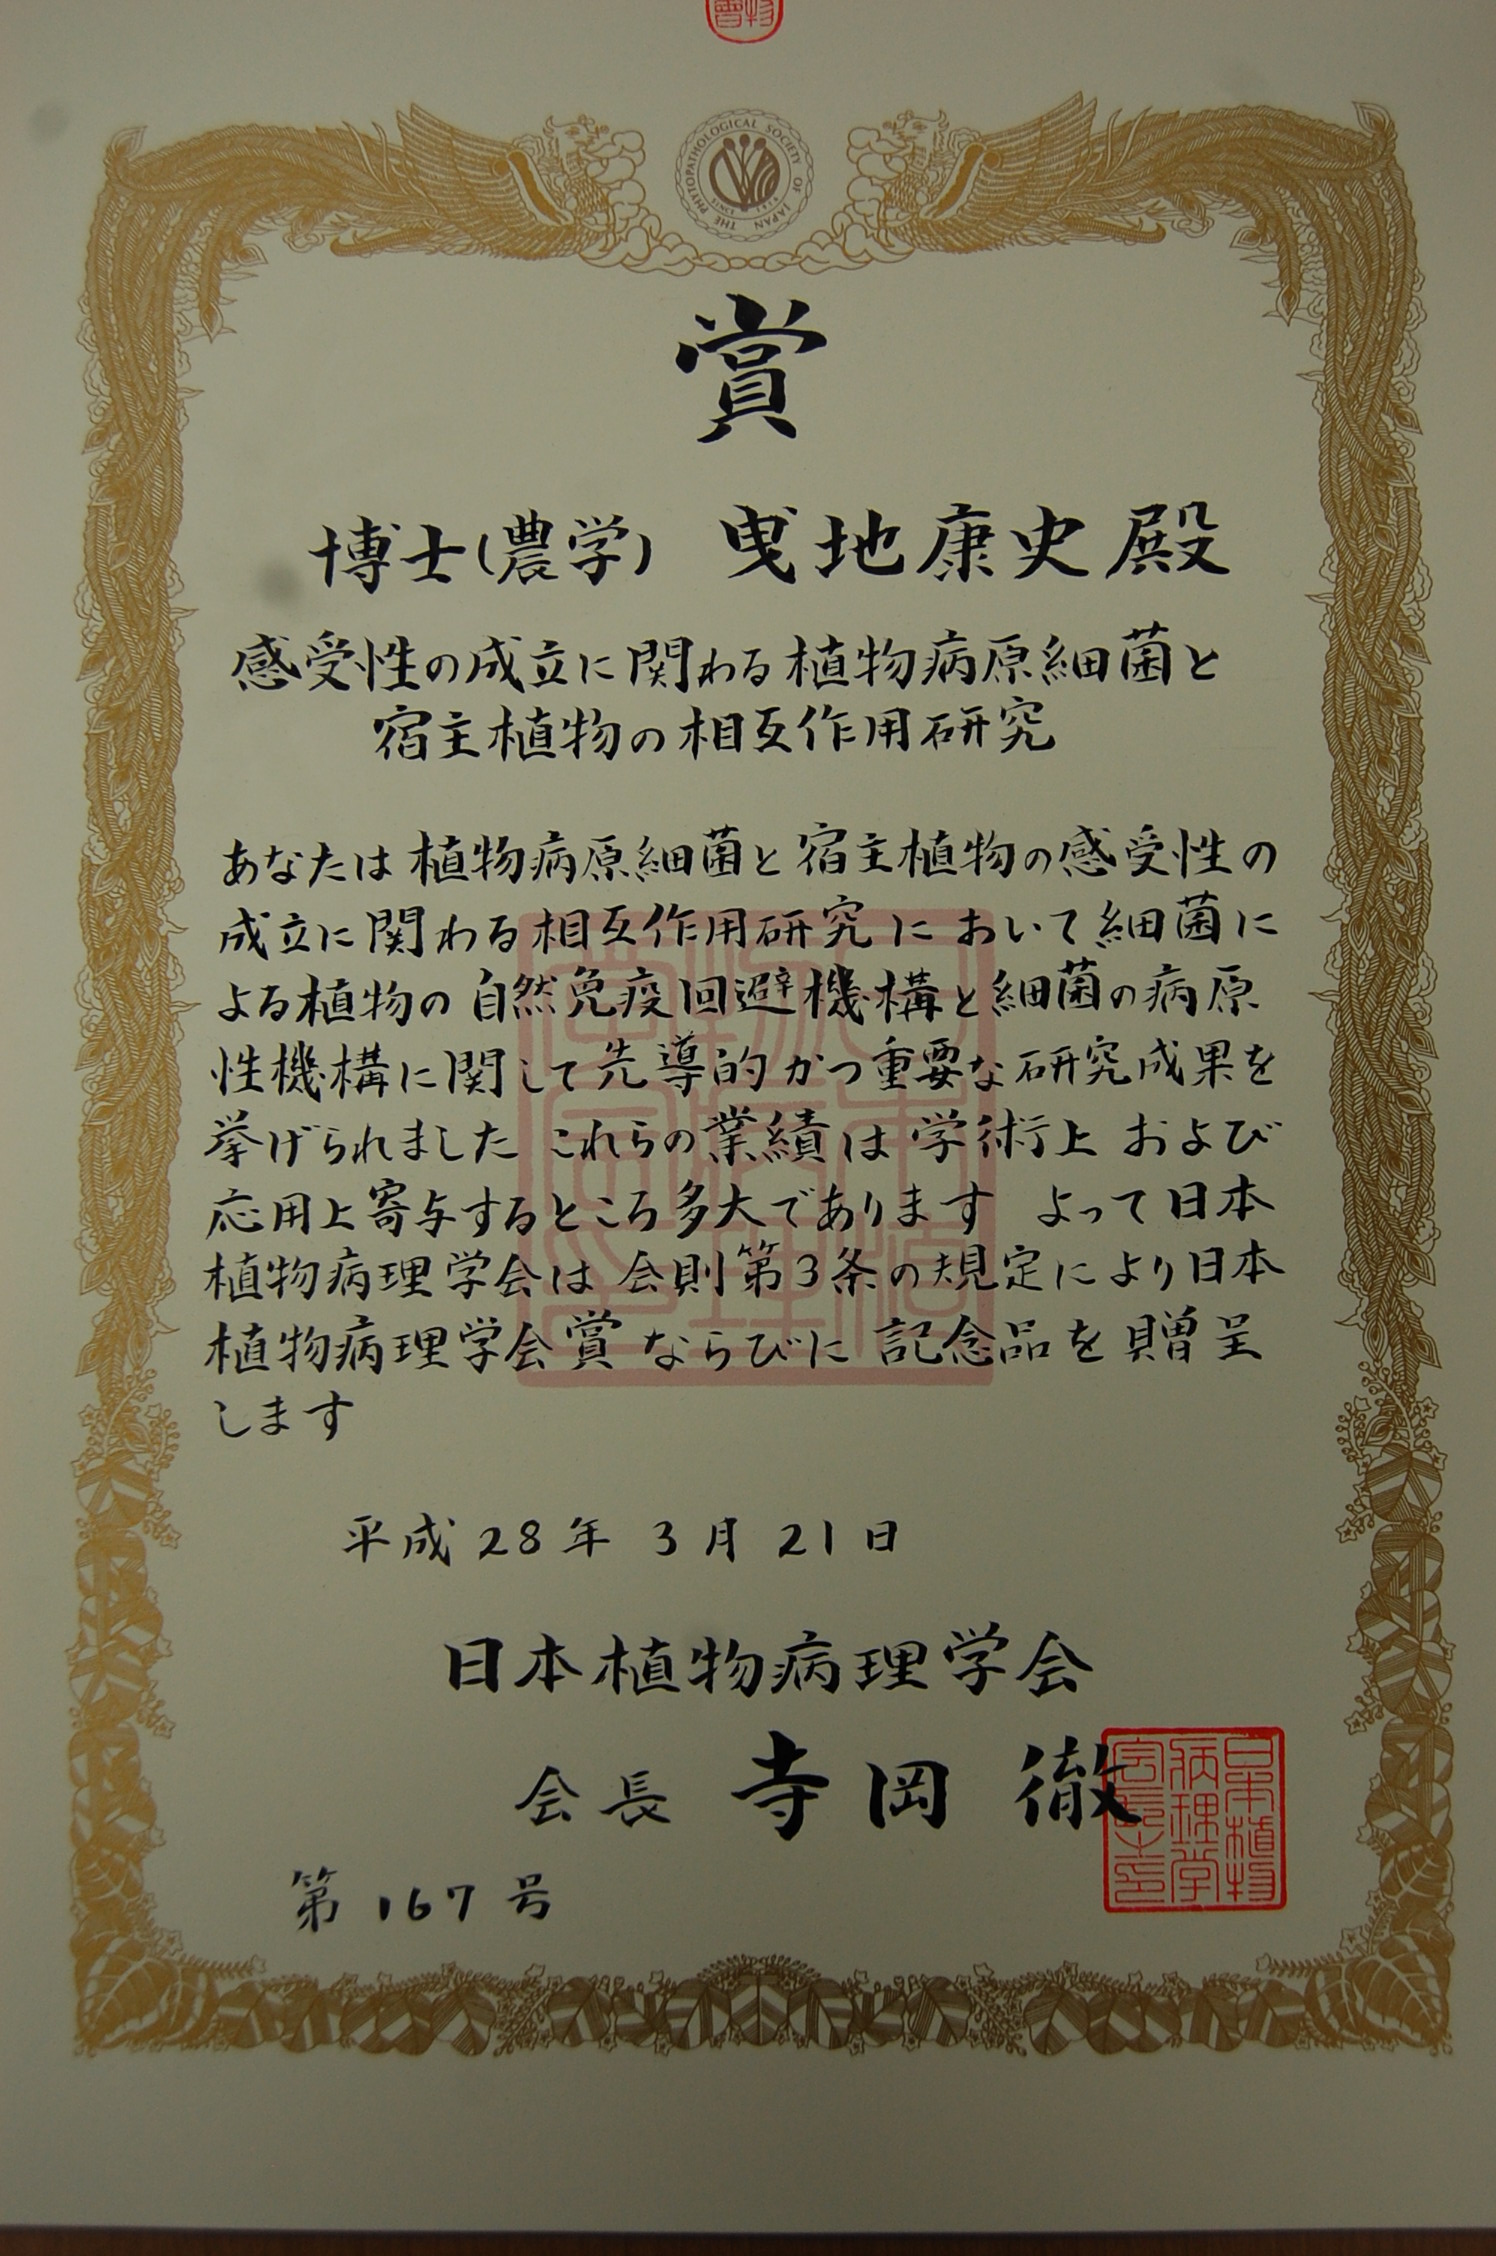 THE PHYTOPATHOLOGICAL SOCIETY OF JAPAN
賞
博士(農学) 曵地康史殿
感受性の成立に関わる植物病原細菌と
宿主植物の相互作用研究
あなたは植物病原細菌と宿主植物の感受性の
成立に関わる相互作用研究において細菌に
よる植物の自然免疫回避機構と細菌の病原
性機構に関して先導的かつ重要な研究成果を
挙げられました これらの業績は学術上および
応用上寄与するところ多大であります よって日本
植物病理学会は会則第3条の規定により日本
植物病理学会賞ならびに記念品を贈呈
します
平成28年3月21日
日本植物病理学会
会長 寺岡 徹
日本植物
病理学
会長之印
第167号